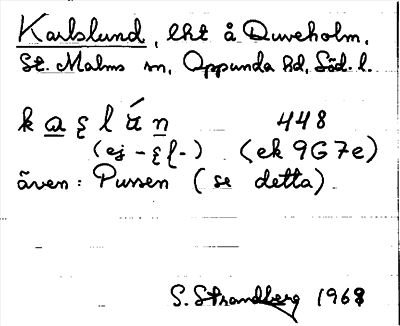 Karlslund, lht å Duveholm,
St. Malms sn, Oppunda hd, Söd. l.
k a ꞩ l ú n 448
(ej - ꞩl - ) (ek 9G7e)
även: Pussen (se detta).
S. Strandberg 1968